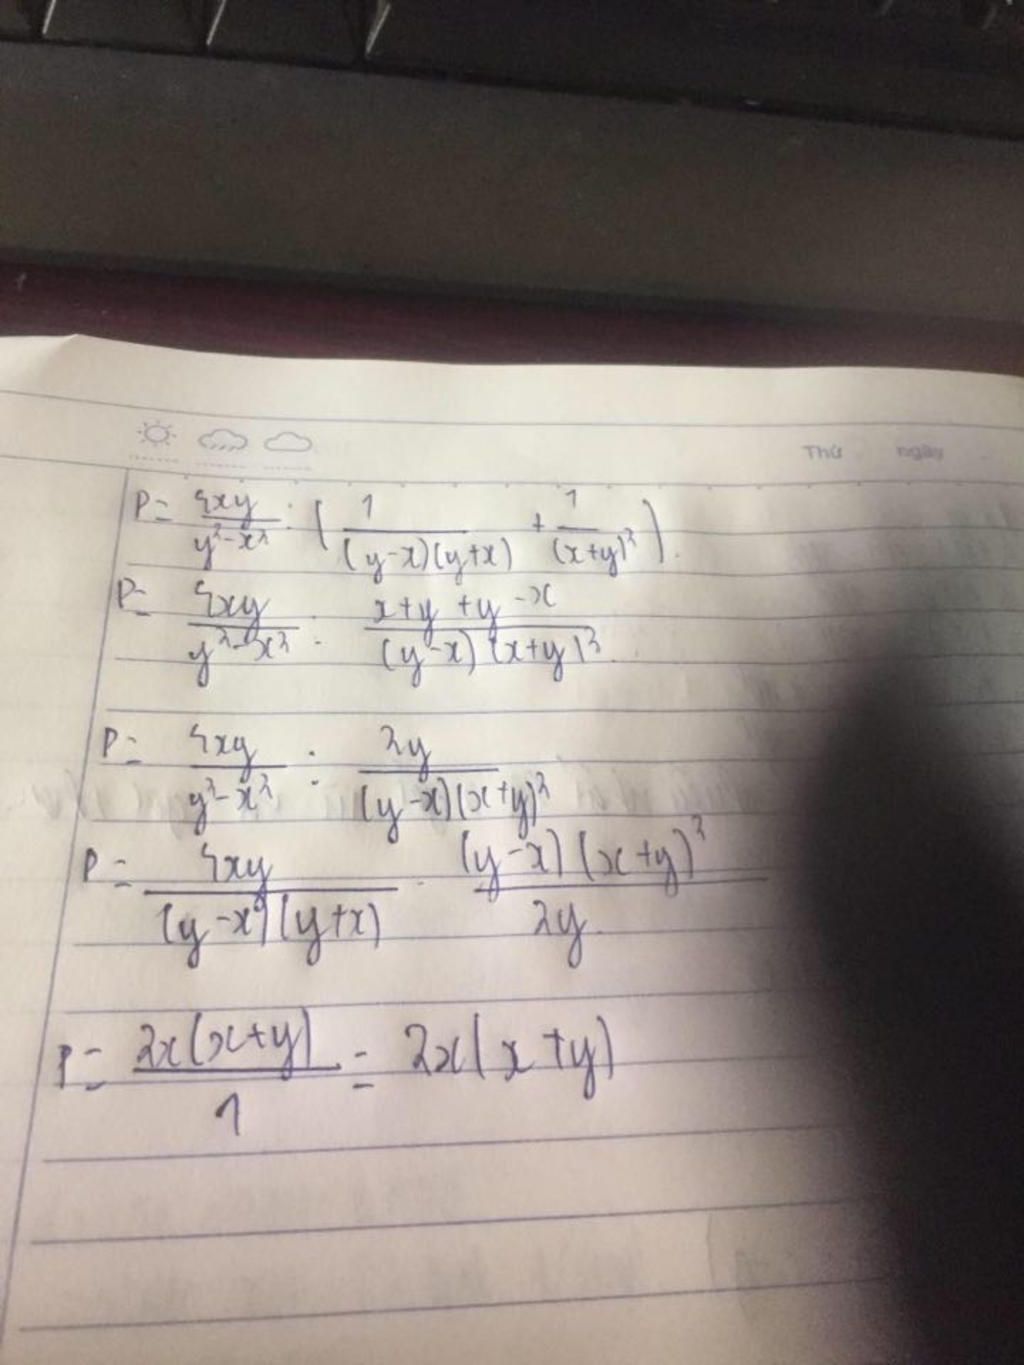 Thứ ngày
P = \frac{4xy}{y^2-x^2} : \left( \frac{1}{(y-x)(y+x)} + \frac{1}{(x+y)^2} \right).
P = \frac{4xy}{y^2-x^2} : \frac{x+y+y-x}{(y-x)(x+y)^2}
P = \frac{4xy}{y^2-x^2} : \frac{2y}{(y-x)(x+y)^2}
P = \frac{4xy}{(y-x)(y+x)} \cdot \frac{(y-x)(x+y)^2}{2y}
P = \frac{2x(x+y)}{1} = 2x(x+y)